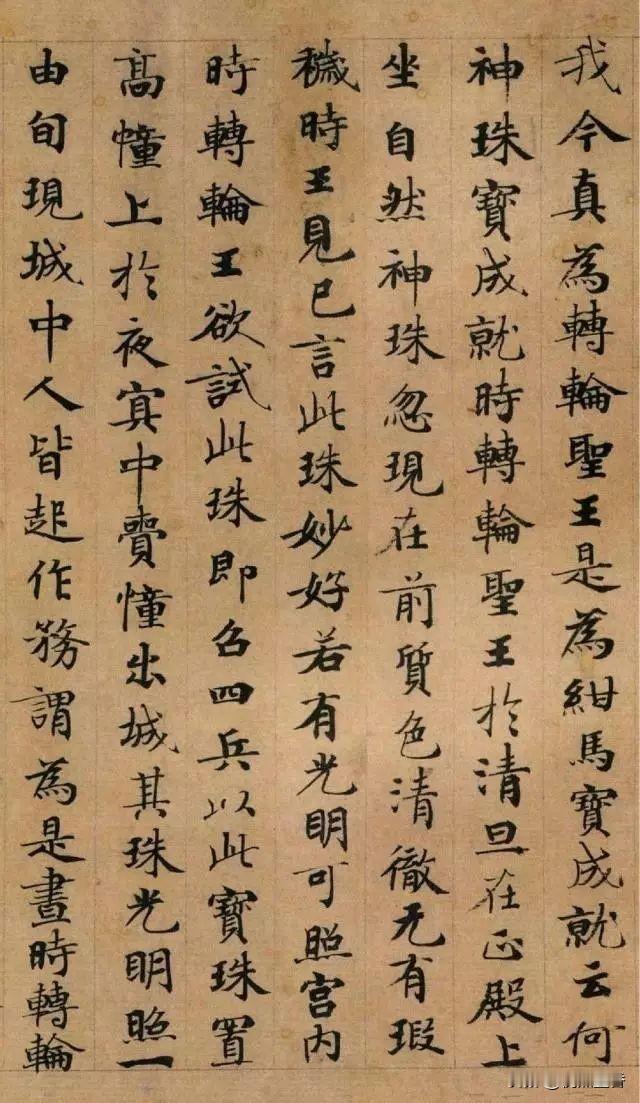 我今真為轉輪聖王是為紺馬寶成就云何
神珠寶成就時轉輪聖王於清旦在正殿上
坐自然神珠忽現在前質色清徹无有瑕
穢時王見已言此珠妙好若有光明可照宮内
時轉輪王欲試此珠即召四兵以此寶珠置
高幢上於夜冥中賷幢出城其珠光明照一
由旬現城中人皆起作務謂為是晝時轉輪